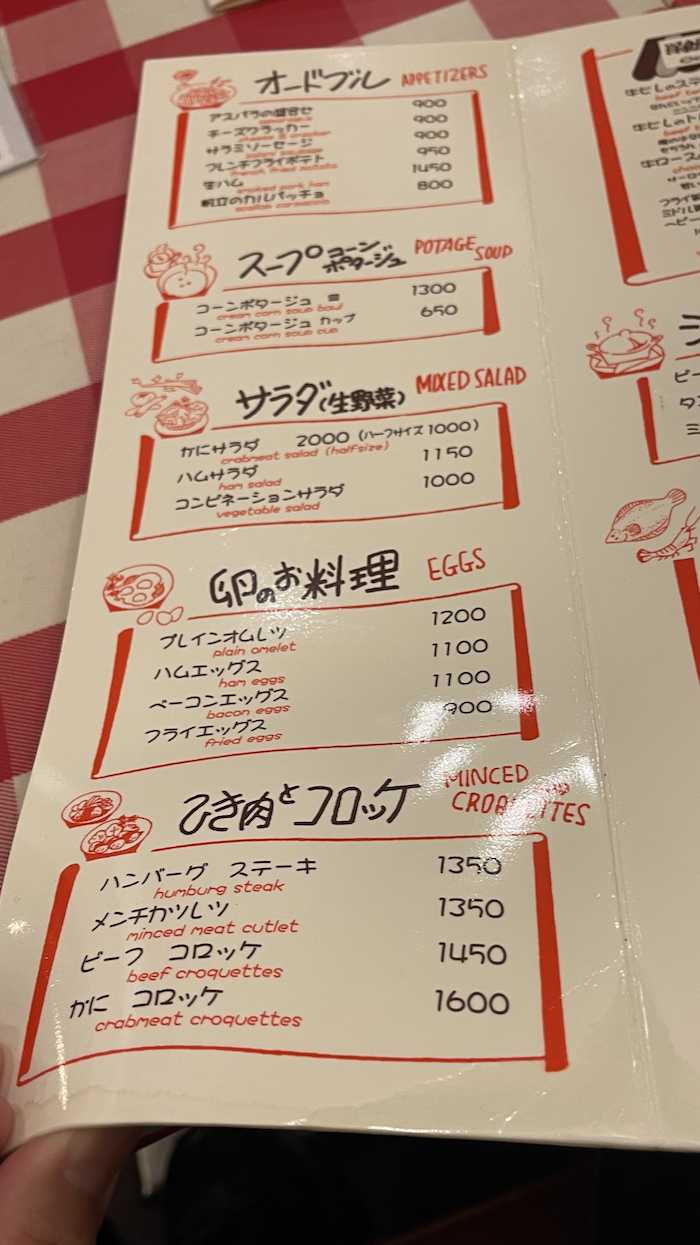 オードブル APPETIZERS
アスパラの盛合せ 900
チーズクラッカー 900
cheese & cracker
サラミソーセージ 900
salami sausage
フレンチフライポテト 950
french fried potato
生ハム 1450
smoked pork ham
帆立のカルパッチョ 800
scallop carpaccio
スープ コーンポタージュ POTAGE SOUP
コーンポタージュ 皿 1300
cream corn soup bowl
コーンポタージュ カップ 650
cream corn soup cup
サラダ(生野菜) MIXED SALAD
かにサラダ 2000 (ハーフサイズ 1000)
crabmeat salad (halfsize)
ハムサラダ 1150
ham salad
コンビネーションサラダ 1000
vegetable salad
卵のお料理 EGGS
プレインオムレツ 1200
plain omelet
ハムエッグス 1100
ham eggs
ベーコンエッグス 1100
bacon eggs
フライエッグス 900
fried eggs
ひき肉とコロッケ MINCED
ハンバーグ ステーキ 1350
humburg steak
メンチカツレツ 1350
minced meat cutlet
ビーフ コロッケ 1450
beef croquettes
かに コロッケ 1600
crabmeat croquettes